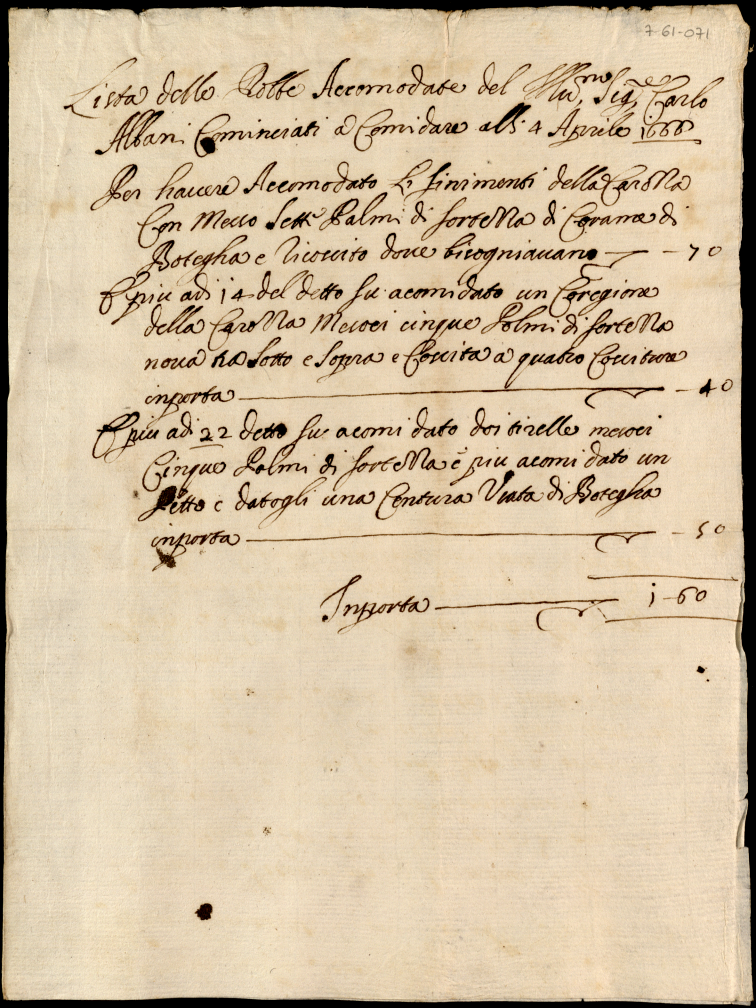 7-61-071
Lista delle Robbe Accomodate del Illu.mo Sig.re Carlo
Albani Cominciati a Comidare alli 4 Aprile 1666
Per havere Accomodato Li finimenti della Carozza
Con Messo Sette Palmi di fortezza di Corame di
Botegha e ricoscito dove bisogniavano — - 70
E piu adi 14 del detto fu acomidato un Coregione
della Carozza Messoci cinque Palmi di fortezza
nova tra Sotto e Sopra e Coscita a quatro Cositure
inporta — - 40
E piu adi 22 detto fu acomidato doi tirelle messoci
Cinque Palmi di fortezza e piu acomidato un
Petto e datogli una Centura Usata di Botegha
inporta — - 50
Inporta — 1-60